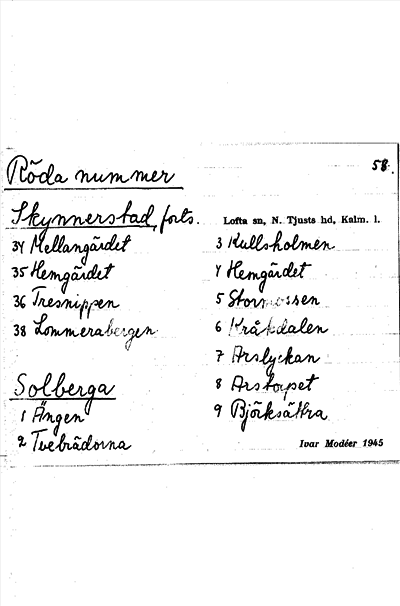 58.
Röda nummer
Skynnerstad, forts.
Lofta sn, N. Tjusts hd, Kalm. l.
34 Mellangärdet
35 Hemgärdet
36 Tresnippen
38 Lommerabergen
Solberga
1 Ängen
2 Tvebrädorna
3 Kullsholmen
4 Hemgärdet
5 Stormossen
6 Kråkdalen
7 Arslyckan
8 Arstorpet
9 Björksättra
Ivar Modéer 1945